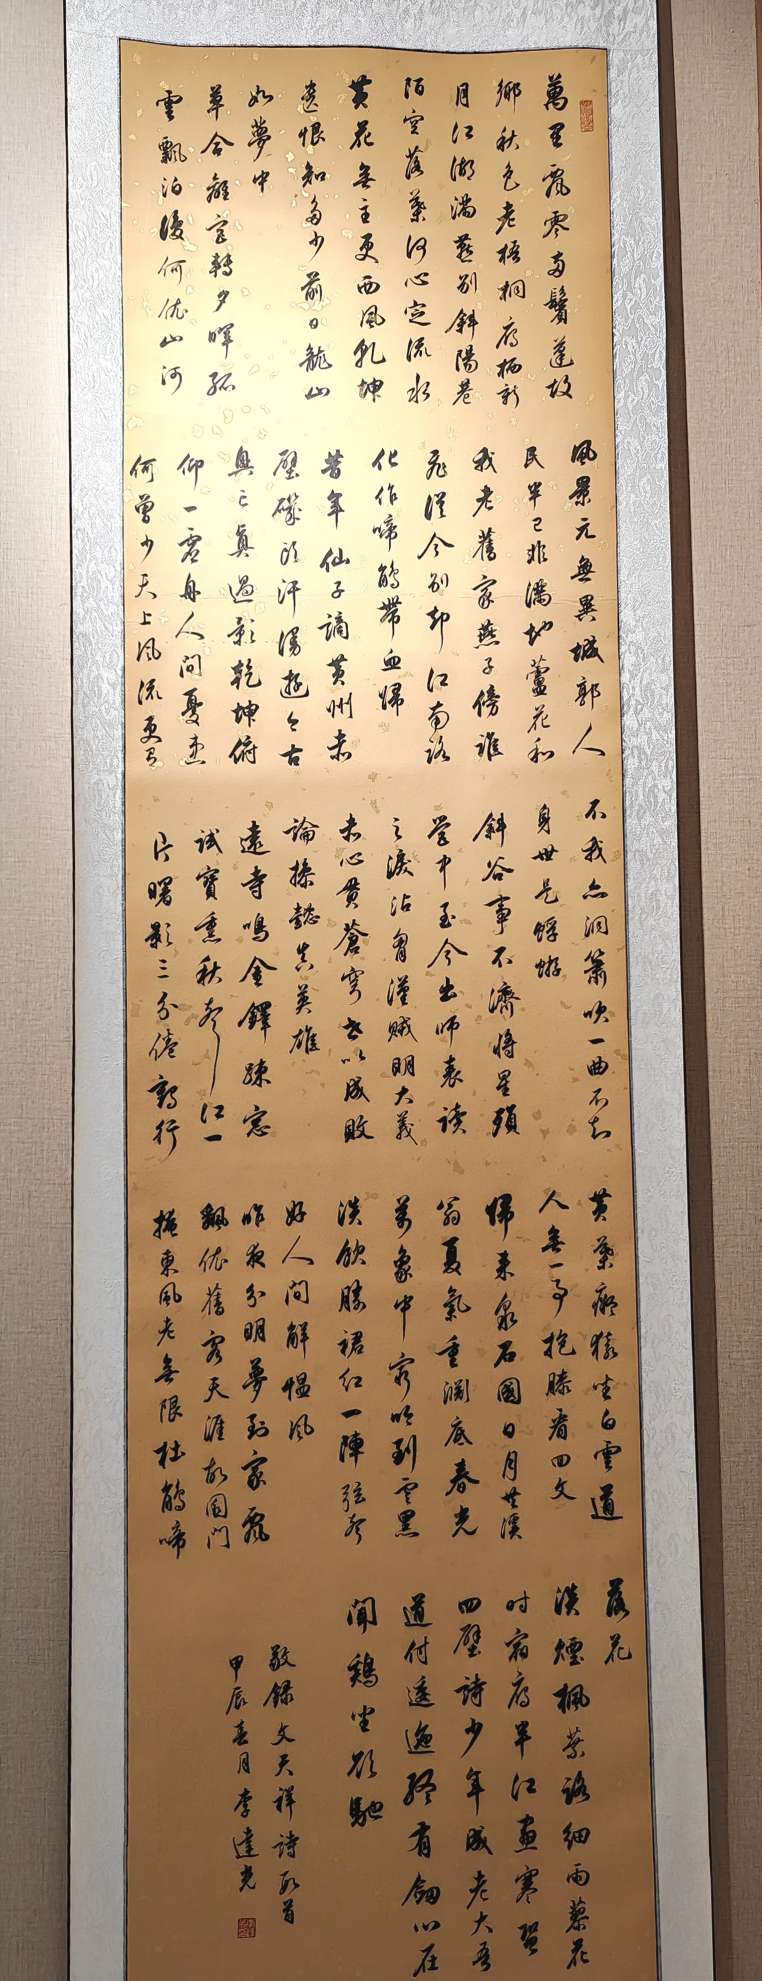 萬里飄零兩鬢蓬故
鄉秋色老梧桐雁栖新
月江湖滿燕別斜陽巷
陌空落葉何心定流水
黃花無主更西風乾坤
遺恨知多少前日龍山
如夢中
草合離宮轉夕暉孤
雲飄泊復何依山河
風景元無異城郭人
民半已非滿地蘆花和
我老舊家燕子傍誰
飛從今別却江南路
化作啼鵑帶血歸
昔年仙子謫黃州赤
壁磯頭汗漫遊今古
興亡真過影乾坤俯
仰一虛舟人間憂患
何曾少天上風流更有
不我亦洞簫吹一曲不知
身世是蜉蝣
斜谷事不濟將星殞
營中至今出師表讀
之淚沾胸漢賊明大義
赤心貫蒼穹世以成敗
論操懿真英雄
遠寺鳴金鐸疎窗
試寶熏秋聲江一
片曙影三分倦鶴行
黃葉痴猿坐白雲道
人無一事抱膝看回文
歸來泉石國日月共溪
翁夏氣重淵底春光
萬象中窮吟到雲黑
淡飲勝裙紅一陣弦聲
好人間解慍風
昨夜分明夢到家飄
飄依舊客天涯故園門
掩東風老無限杜鵑啼
落花
淡煙楓葉路細雨蓼花
時宿雁半江畫寒蛩
四壁詩少年成老大吾
道付逶迤終有劍心在
聞鷄坐欲馳
敬錄文天祥詩數首
甲辰春月李達光